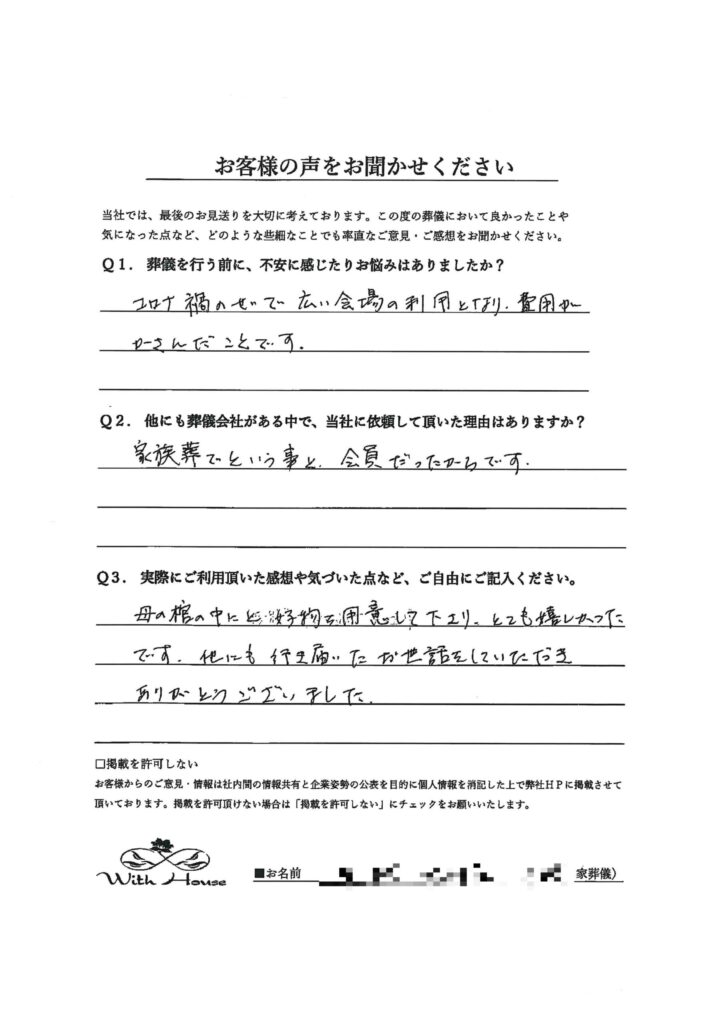 お客様の声をお聞かせください
当社では、最後のお見送りを大切に考えております。この度の葬儀において良かったことや
気になった点など、どのような些細なことでも率直なご意見・ご感想をお聞かせください。
Q1. 葬儀を行う前に、不安に感じたりお悩みはありましたか?
コロナ禍のせいで広い会場の利用となり、費用が
かさんだことです。
Q2. 他にも葬儀会社がある中で、当社に依頼して頂いた理由はありますか?
家族葬でという事と、会員だったからです。
Q3. 実際にご利用頂いた感想や気づいた点など、ご自由にご記入ください。
母の棺の中に好物を用意して下さり、とても嬉しかった
です。他にも行き届いたお世話をしていただき
ありがとうございました。
□掲載を許可しない
お客様からのご意見・情報は社内間の情報共有と企業姿勢の公表を目的に個人情報を消記した上で弊社HPに掲載させて
頂いております。掲載を許可頂けない場合は「掲載を許可しない」にチェックをお願いいたします。
With House
■お名前 家葬儀)